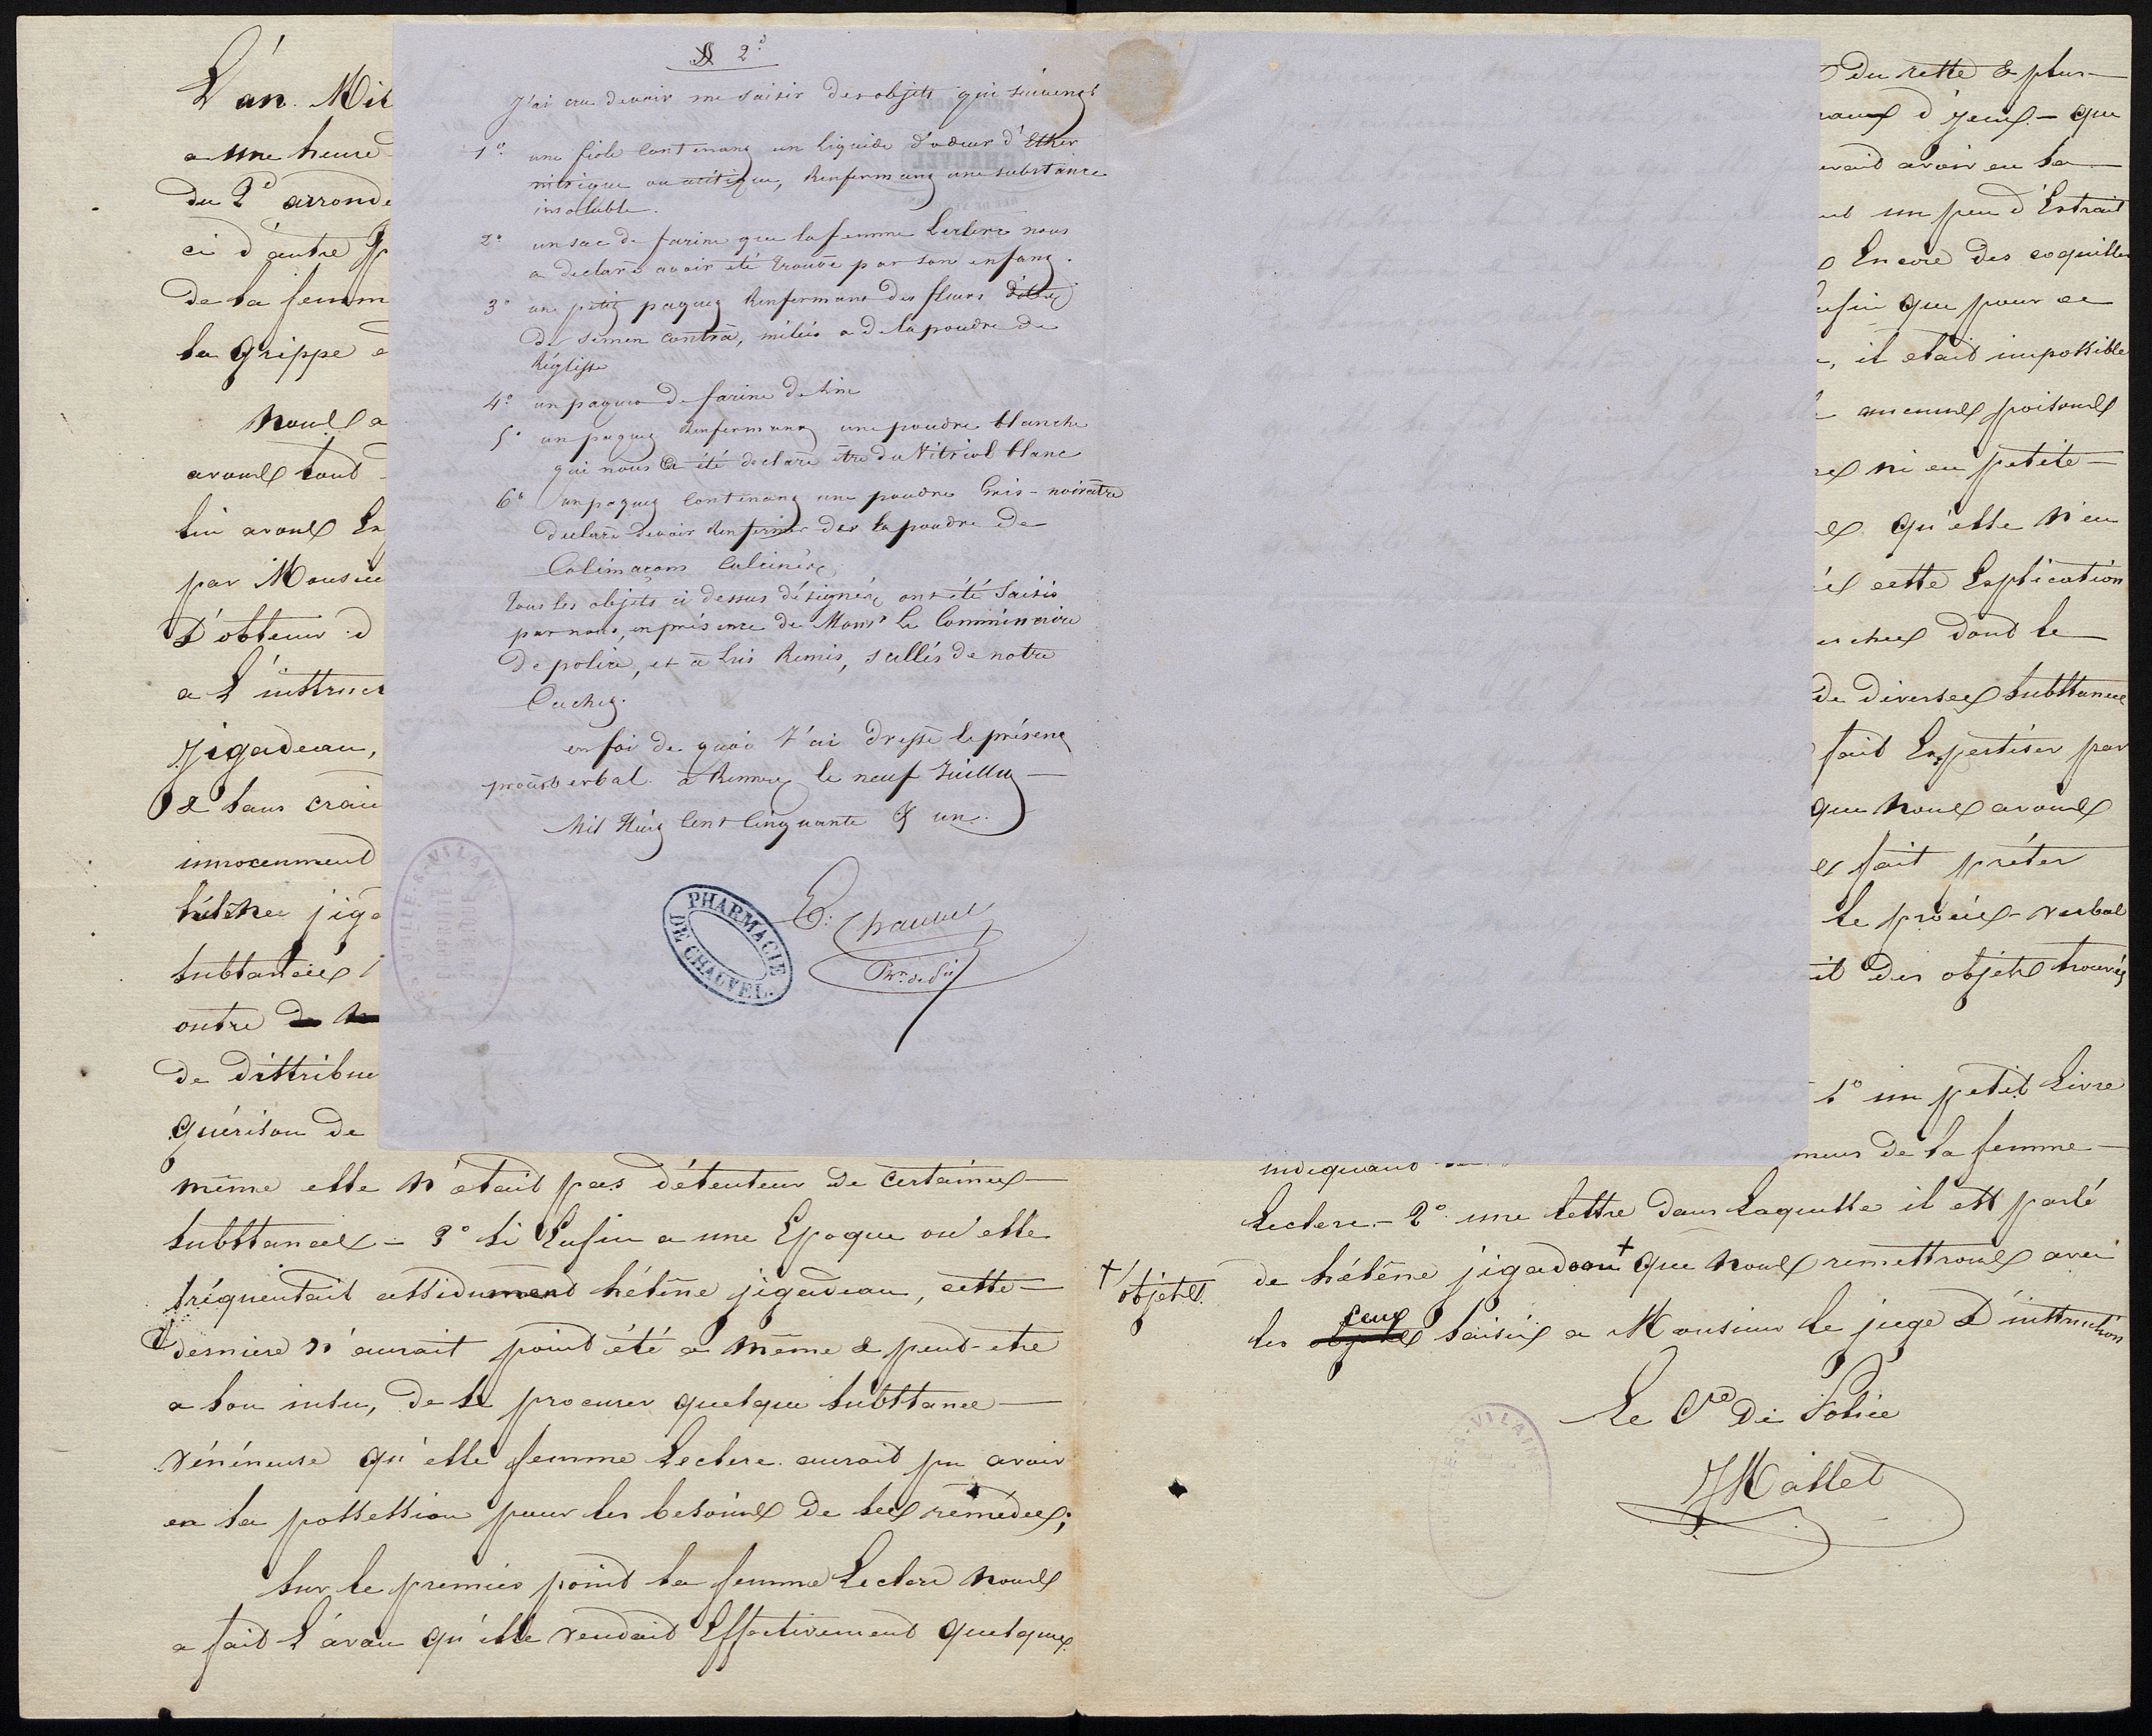 L'an Mil
a une heure
du 2e arronde
ci d'autre p
de la femm
la grippe e
Nous a
avons tout
lui avons Ex
par Monsieu
D'obtenir d
a L'instruct
Jigadeau,
& sans crain
innocemment
hélène jiga
substances
outre de
de distribue
guérison de
même elle n'était pas détenteur de certaines
substances - 3° si Enfin a une Epoque ou elle
fréquentait assidument hélène jigadeau, cette
derniere n'aurait point été a même & peut-etre
a son insu, de se procurer quelque substance
vénéneuse qu'elle femme Leclerc aurait pu avoir
en sa possession pour les besoins de ses remèdes;
Sur le premier point la femme Leclerc nous
a fait L'aveu qu'elle vendait Effectivement quelques
§ 2e
J'ai cru devoir me saisir des objets qui suivent
1° une fiole Contenant un liquide d'odeur d'Ether
nitrique ou acétique, Renfermant une substance
insoluble.
2° un sac de farine que la femme Leclerc nous
a déclaré avoir été trouvé par son enfant.
3° un petit paquet Renfermant des fleurs
de Semen Contrà, mêlés a de la poudre de
Réglisse
4° un paquet de farine de Lin
5° un paquet Renfermant une poudre blanche
qui nous a été déclaré être du Vitriol blanc
6° un paquet Contenant une poudre Gris-noirâtre
déclaré devoir Renfermer de la poudre de
Colimaçons Calcinés
Tous les objets ci dessus désignés ont été saisis
par nous, en présence de Monsr Le Commissaire
de police, et à lui Remis, scellés de notre
Cachet.
en foi de quoi J'ai dressé le présent
procès verbal à Rennes le neuf Juillet
Mil Huit Cent Cinquante & un.
E. Chauvel
PHARMACIE
DE CHAUVEL.
du reste & plus
maux d'yeux - que
avoir eu sa
un peu d'Extrait
Encore des coquilles
enfin que pour ce
, il etait impossible
aucuns poisons
ni en petite
qu'elle n'en
cette Explication
dont le
de diverses substances
fait Expertiser par
que nous avons
fait prêter
le procès-verbal
des objets trouvés
1° un petit Livre
indiquant
de la femme
Leclerc - 2° une lettre dans laquelle il est parlé
de hélène jigadeau + que nous remettrons avec
+ objets
ceux
les objets saisis a Monsieur le juge D'instruction
Le Cre de Police
JMallet
ILLE-&-VILAINE